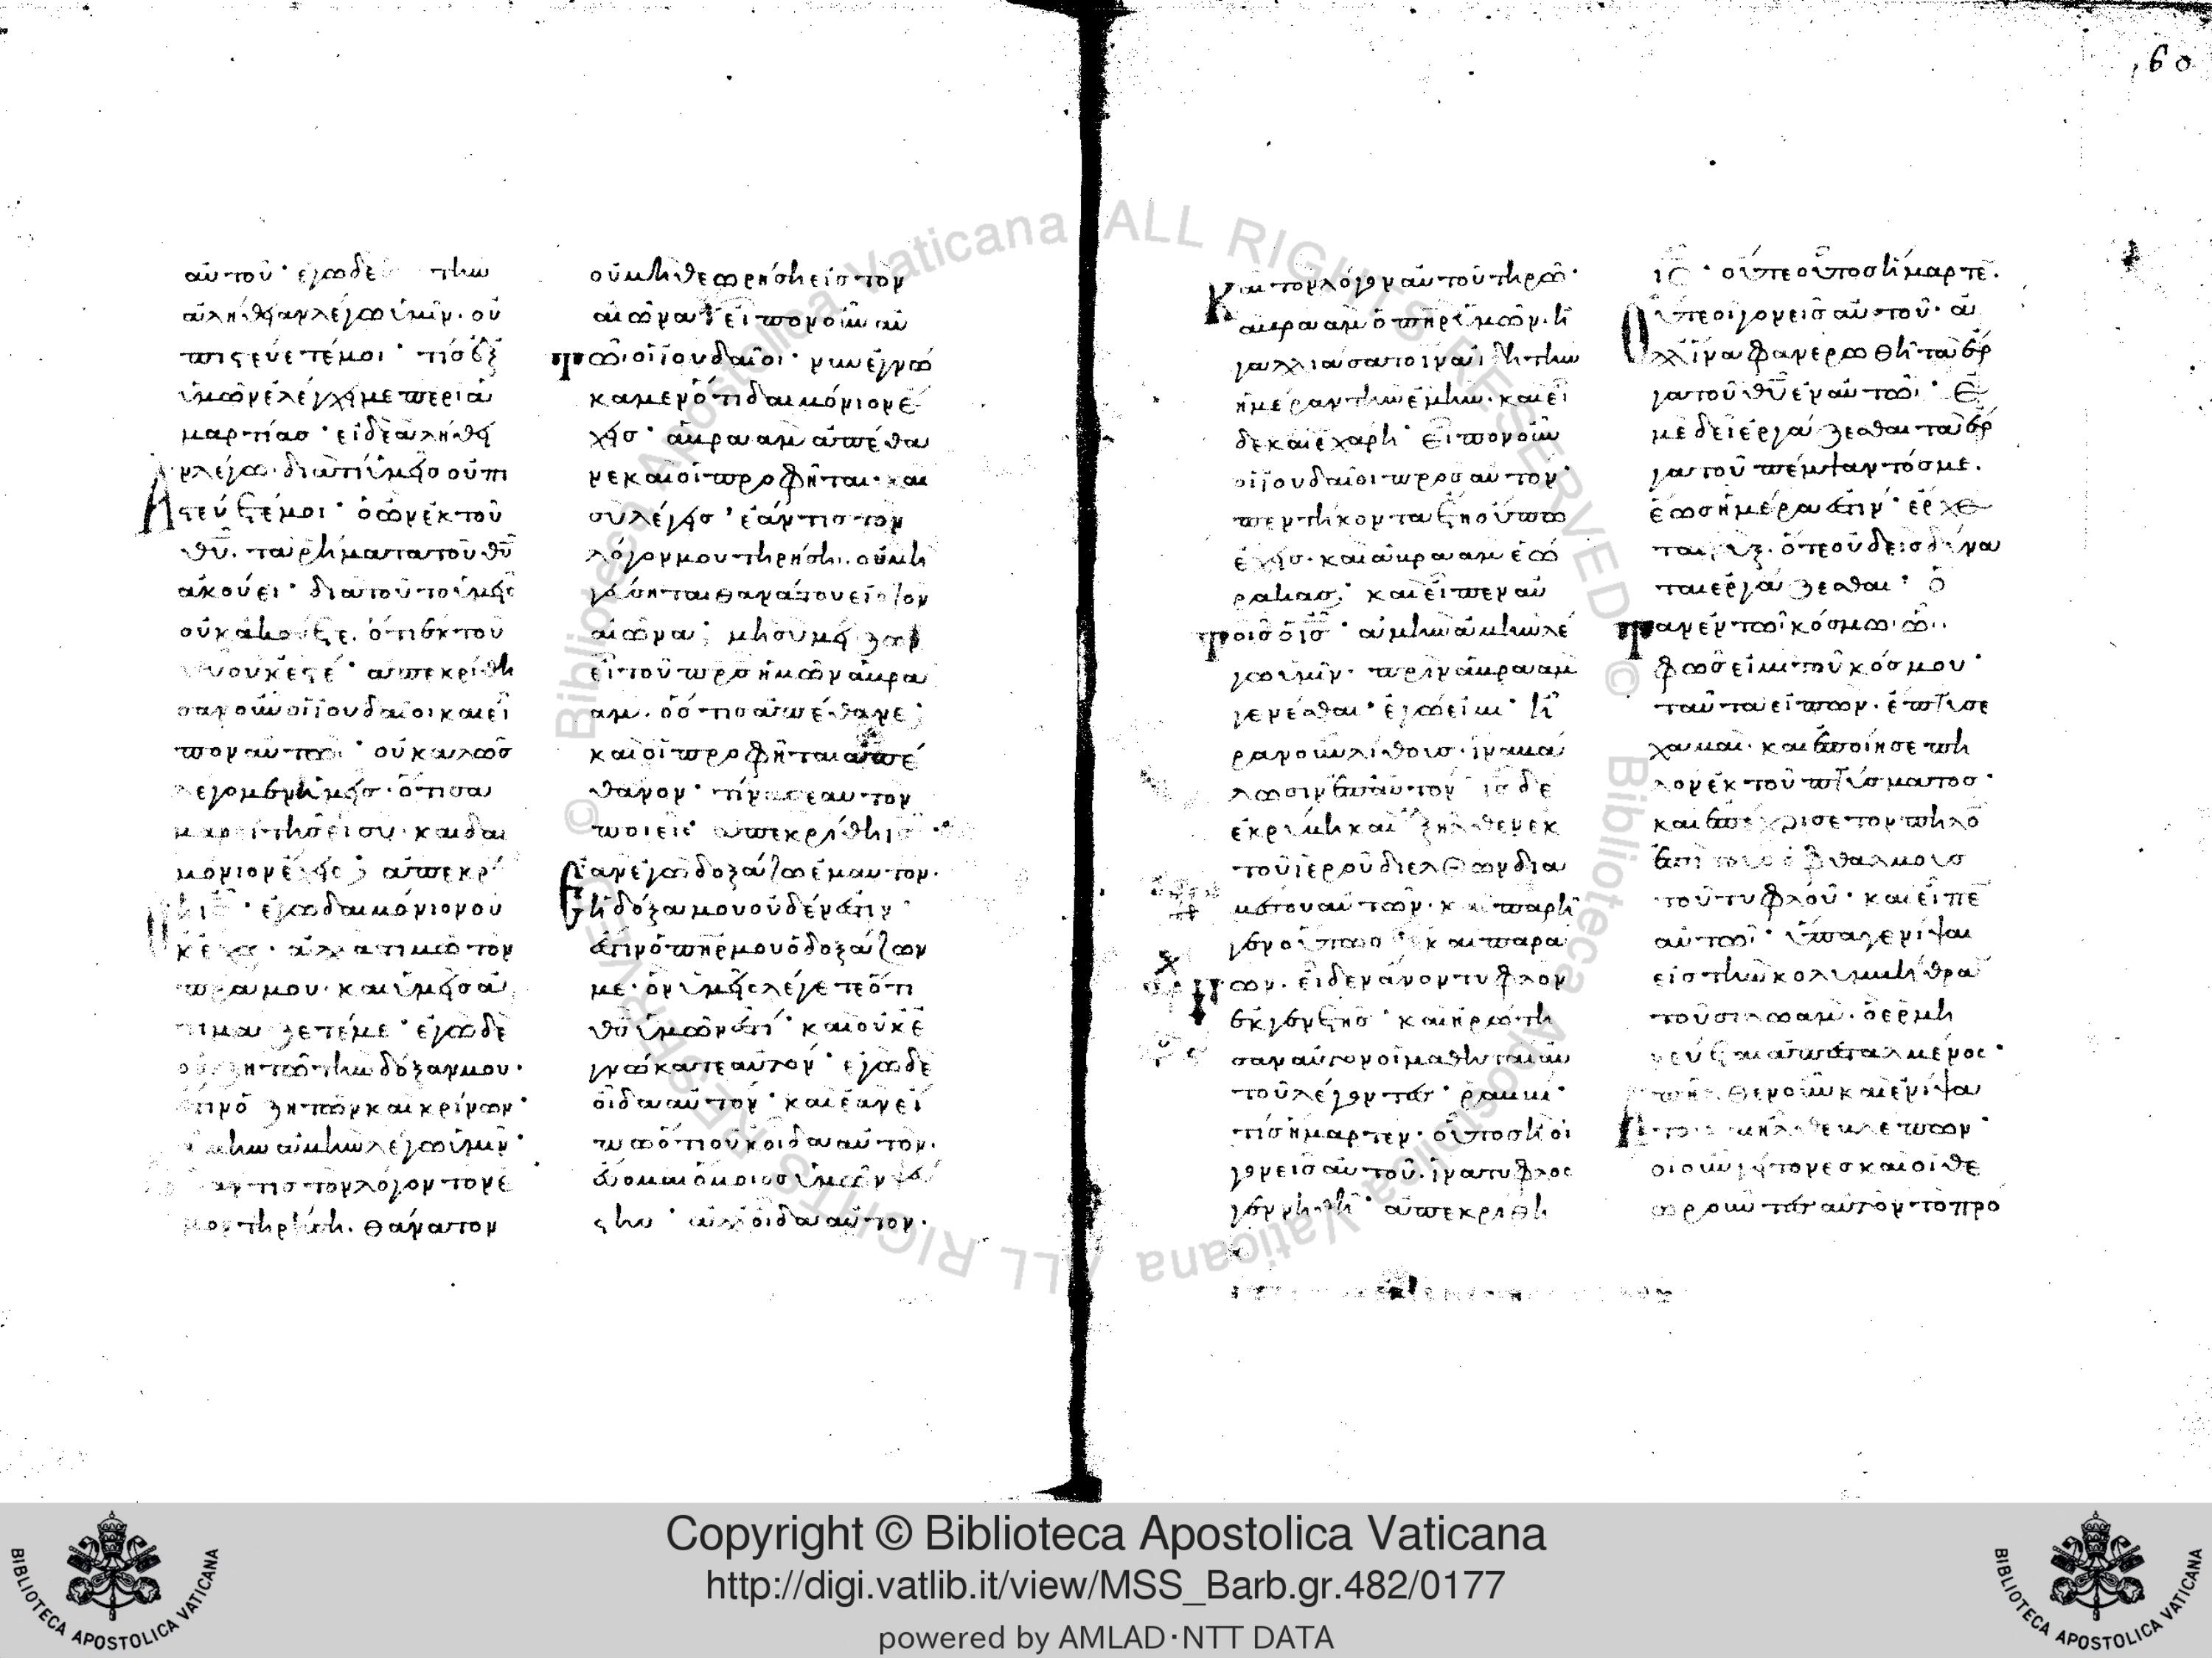 160
αὐτοῦ· ἐγὼ δὲ τὴν
ἀλήθειαν λέγω ὑμῖν· οὐ
πιστεύετέ μοι· τίς ἐξ
ὑμῶν ἐλέγχει με περὶ ἁ
μαρτίας· εἰ δὲ ἀλήθει
αν λέγω· διατί ὑμεῖς οὐ πι
στεύετέ μοι· ὁ ὢν ἐκ τοῦ
θῡ. τὰ ῥήματα τοῦ θῡ
ἀκούει· διὰ τοῦτο ὑμεῖς
οὐκ ἀκούετε. ὅτι ἐκ τοῦ
θῡ οὐκ ἐστέ· ἀπεκρίθη
σαν οὖν οἱ ἰουδαῖοι καὶ εἶ
πον αὐτῶ· οὐ καλῶς
λέγομεν ἡμεῖς· ὅτι σα
μαρείτης εἶ σὺ· καὶ δαι
μόνιον ἔχεις; ἀπεκρί
θη ις̄· ἐγὼ δαιμόνιον οὐ
κ ἔχω· ἀλλὰ τιμῶ τὸν
πρ̄α μου· καὶ ὑμεῖς ἀ
τιμάζετέ με· ἐγὼ δὲ
οὐ ζητῶ τὴν δόξαν μου·
ἔστιν ὁ ζητῶν καὶ κρίνων·
ἀμὴν ἀμὴν λέγω ὑμῖν·
ἐάν τις τὸν λόγον τὸν ἐ
μὸν τηρήση. θάνατον
οὐ μὴ θεωρήση εἰς τὸν
αἰῶνα· εἶπον οὖν αὐ
τῶ οἱ ἰουδαῖοι· νῦν ἐγνώ
καμεν ὅτι δαιμόνιον ἔ
χεις· ἀβραὰμ ἀπέθα
νε καὶ οἱ προφῆται· καὶ
σὺ λέγεις· ἐάν τις τὸν
λόγον μου τηρήση. οὐ μὴ
γεύσηται θανάτου εἰς τὸν
αἰῶνα; μὴ σὺ μείζων
εἶ τοῦ πρ̄ς ἡμῶν ἀβρα
άμ. ὅστις ἀπέθανε;
καὶ οἱ προφῆται ἀπέ
θανον· τίνα σεαυτὸν
ποιεῖς ἀπεκρίθη ις̄·
ἐὰν ἐγὼ δοξάζω ἐμαυτόν·
ἡ δόξα μου οὐδέν ἐστιν·
ἔστιν ὁ πηρ̄ μου ὁ δοξάζων
με· ὃν ὑμεῖς λέγετε ὅτι
θς̄ ὑμῶν ἐστί· καὶ οὐκ ἐ
γνώκατε αὐτόν· ἐγὼ δὲ
οἶδα αὐτόν· καὶ ἐὰν εἴ
πω ὅτι οὐκ οἶδα αὐτόν.
ἔσομαι ὅμοιος ὑμῶν ψεύ
στης· ἀλλ' οἶδα αὐτόν.
Καὶ τὸν λόγον αὐτοῦ τηρῶ·
ἀβραὰμ ὁ πηρ̄ ὑμῶν. ἠ
γαλλιάσατο ἵνα ἴδη τὴν
ἡμέραν τὴν ἐμήν. καὶ εἶ
δε καὶ ἐχάρη· εἶπον οὖν
οἱ ἰουδαῖοι πρὸς αὐτόν·
πεντήκοντα ἔτη οὔπω
ἔχεις· καὶ ἀβραὰμ ἑώ
ρακας· καὶ εἶπεν αὐ
τοῖς ὁ ις̄· ἀμὴν ἀμὴν λέ
γω ὑμῖν· πρὶν ἀβραὰμ
γενέσθαι· ἐγώ εἰμι· ἦ
ραν οὖν λίθους· ἵνα βά
λωσιν ἐπ' αὐτόν· ις̄ δὲ
ἐκρύβη καὶ ἐξῆλθεν ἐκ
τοῦ ἱεροῦ διελθὼν διὰ
μέσου αὐτῶν· καὶ παρῆ
γεν οὕτως· καὶ παρά
γων. εἶδεν ἄν̄ον τυφλὸν
ἐκ γενετῆς· καὶ ἠρώτη
σαν αὐτὸν οἱ μαθηταὶ αὐ
τοῦ λέγοντες· ῥαββί·
τίς ἥμαρτεν· οὗτος ἢ οἱ
γονεῖς αὐτοῦ. ἵνα τυφλὸς
γεννηθῆ· ἀπεκρίθη
ις̄· οὔτε οὗτος ἥμαρτε.
οὔτε οἱ γονεῖς αὐτοῦ· ἀ
λλ' ἵνα φανερωθῆ τὰ ἔρ
γα τοῦ θῡ ἐν αὐτῶ· ἐ
μὲ δεῖ ἐργάζεσθαι τὰ ἔρ
γα τοῦ πέμψαντός με.
ἕως ἡμέρα ἐστίν· ἔρχε
ται νύξ. ὅτε οὐδεὶς δύνα
ται ἐργάζεσθαι· ὅ
ταν ἐν τῶ κόσμω ὦ·
φῶς εἰμι τοῦ κόσμου·
ταῦτα εἰπών. ἔπτυσε
χαμαί· καὶ ἐποίησε πη
λὸν ἐκ τοῦ πτύσματος·
καὶ ἐπέχρισε τὸν πηλὸν
ἐπὶ τοὺς ὀφθαλμοὺς
τοῦ τυφλοῦ· καὶ εἶπε
αὐτῶ· ὕπαγε νίψαι
εἰς τὴν κολυμβήθρα
τοῦ σιλωάμ. ὃ ἑρμη
νεύεται ἀπεσταλμένος·
ἀπῆλθεν οὖν καὶ ἐνίψα
το· καὶ ἦλθε βλέπων·
οἱ οὖν γείτονες καὶ οἱ θε
ωροῦντες αὐτὸν τὸ πρό
Copyright © Biblioteca Apostolica Vaticana
http://digi.vatlib.it/view/MSS_Barb.gr.482/0177
powered by AMLAD·NTT DATA
BIBLIOTECA APOSTOLICA VATICANA
BIBLIOTECA APOSTOLICA VATICANA